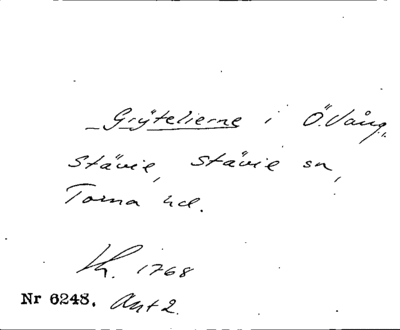 Grÿtelierne i Ö. Vång,
Stävie, Stävie sn,
Torna hd.
Kh. 1768
Nr 6248. Akt 2.